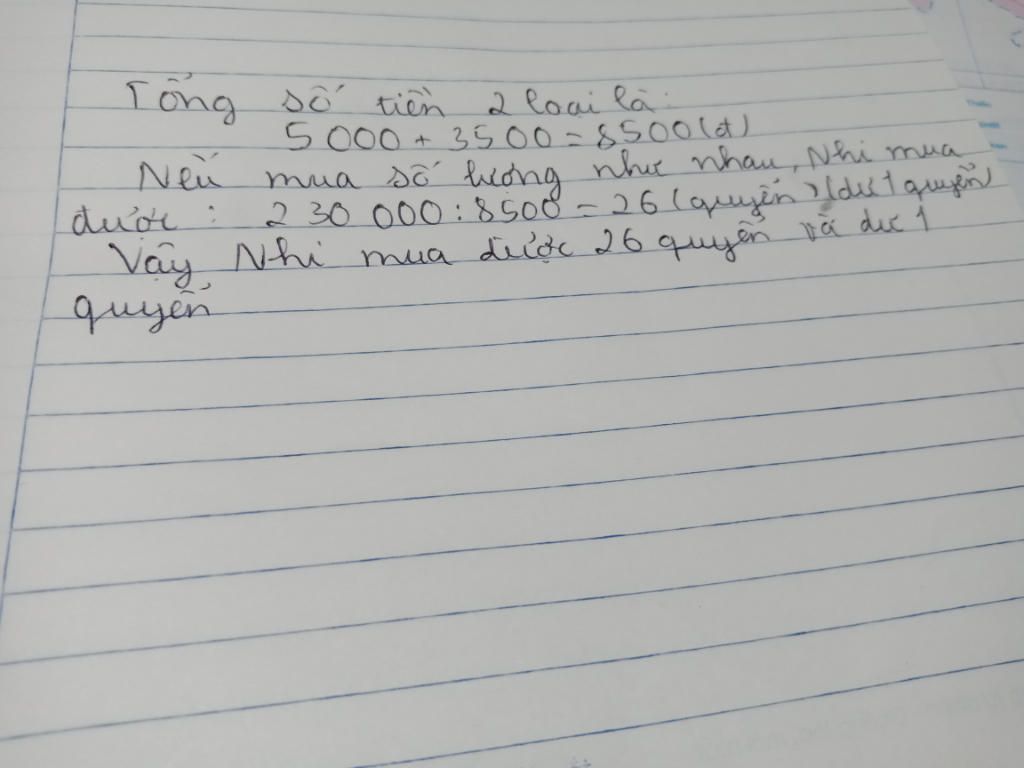 Tổng số tiền 2 loại là:
5 000 + 3500 = 8500 (đ)
Nếu mua số lượng như nhau, Nhi mua
được : 2 30 000 : 8500 = 26 (quyển) (dư 1 quyển)
Vậy Nhi mua được 26 quyển và dư 1
quyển